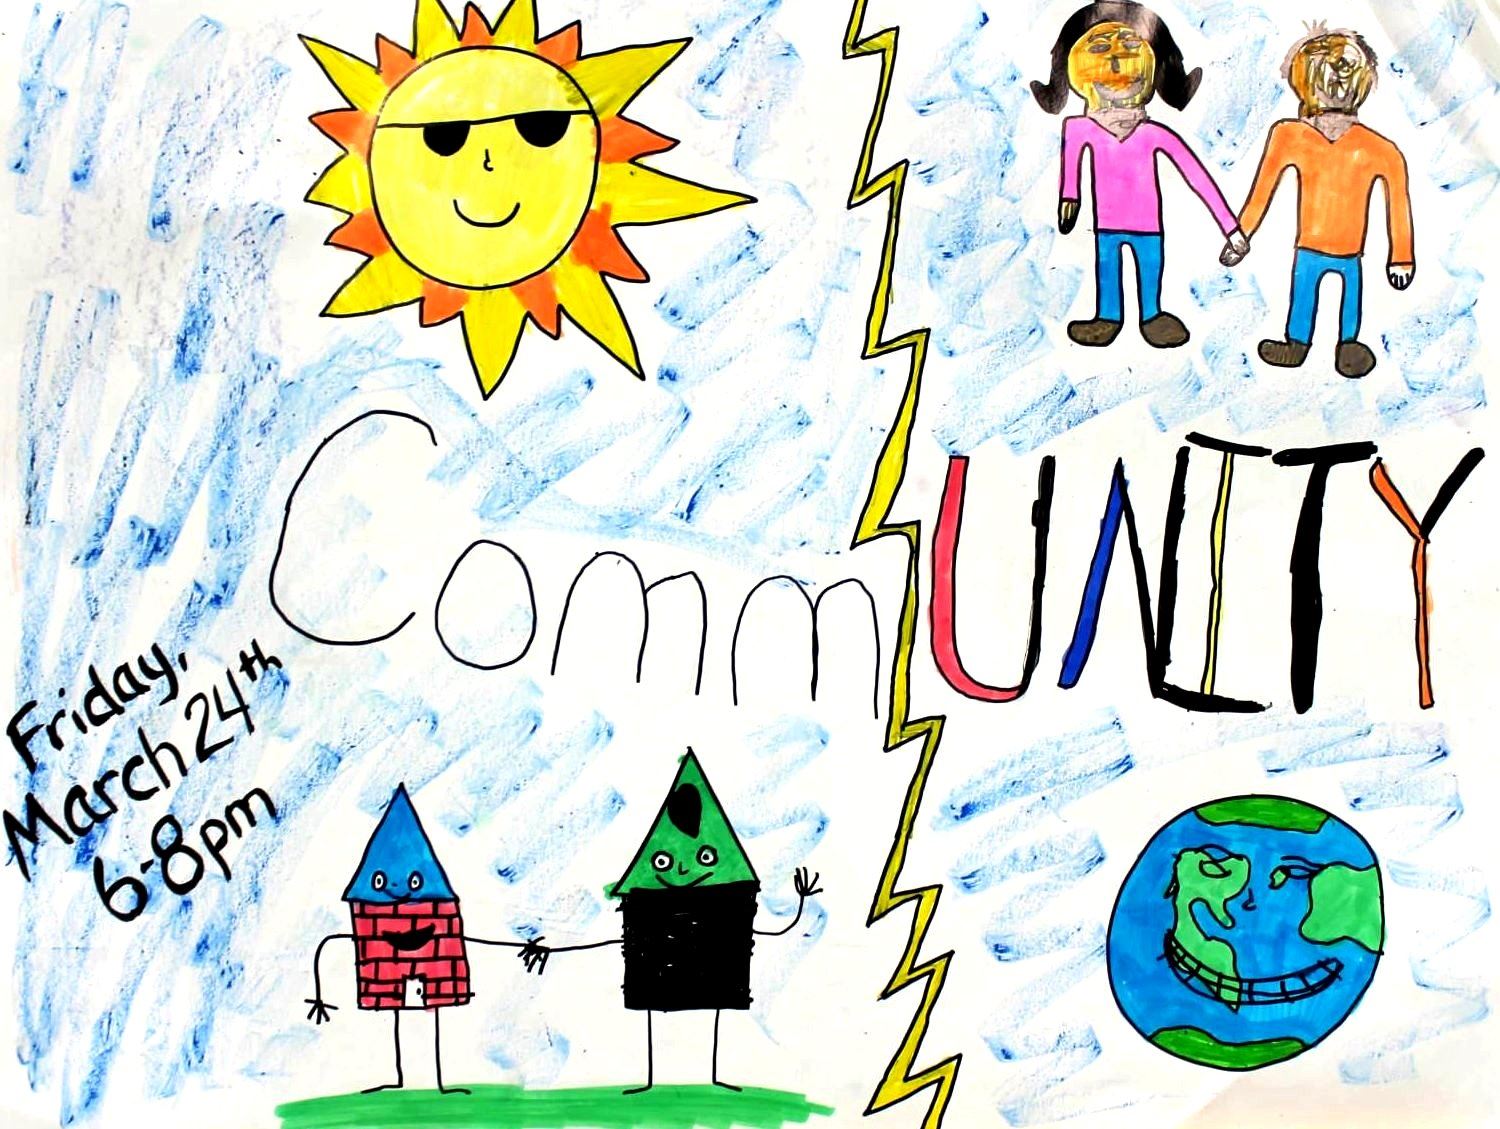 CommUNITY
Friday,
March 24th
6-8pm